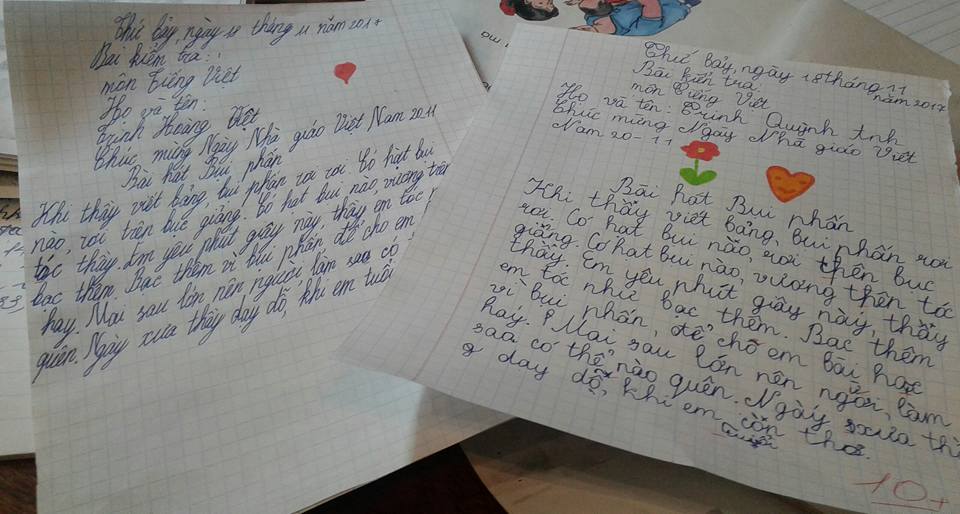 Thứ bảy, ngày 18 tháng 11 năm 2017
Bài kiểm tra:
môn Tiếng Việt
Họ và tên:
Trinh Hoàng Việt
Chúc, mừng Ngày Nhà giáo Việt Nam 20 11
Bài hát Bụi phấn
Khi thầy viết bảng, bụi phấn rơi rơi. Có hạt bụi
nào, rơi trên bục giảng. Có hạt bụi nào, vương trên
tóc thầy. Em yêu phút giây này, thầy em tóc
bạc thêm. Bạc thêm vì bụi phấn, để cho em
hay. Mai sau lớn nên người, làm sao có
quên. Ngày xưa thầy dạy dỗ, khi em tuổi
Thứ bảy, ngày 18 tháng 11
năm 2017
Bài kiển tra:
môn Tiếng Việt
Họ và tên: Trinh Quỳnh Anh
Chúc mừng Ngay Nhà giáo Việt
Nam 20-11
Bài hát Bui phấn
Khi thầy viết bảng, bụi phấn rơi
rơi. Có hạt bụi nào, rơi trên bục
giảng. Có hạt bụi nào, vương thên tóc
thầy. Em yêu phút giây này, thầy
em tóc như bạc thêm. Bạc thêm
vì bụi phấn, để cho em bài học
hay. Mai sau lớn nên ngời, làm
sao có thể nào quên. Ngày xưa
dạy dỗ, khi em còn thơ.
10+